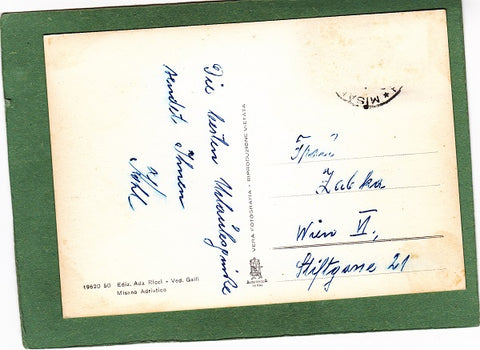 Die besten Urlaubsgrüße
sendet Ihnen
Kohl
VERA FOTOGRAFIA - RIPRODUZIONE VIETATA
19620 50 Ediz. Ada Ricci - Ved. Galli
Misano Adriatico
★ MISA
Zabka
Wien VI.,
Stiftgasse 21